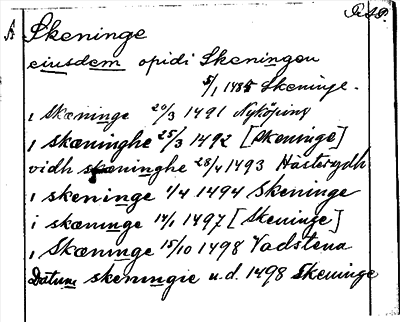 A Skeninge
eiusdem opidi Skeningen
5/1 1485 Skeninge.
i Skæninge 20/3 1491 Nyköping
i skæninghe 25/3 1492 [Skeninge]
vidh skæninghe 28/4 1493 Hästerydh
i skeninge 1/4 1494 Skeninge
i skæninge 14/1 1497 [Skeninge]
i Skæninge 15/10 1498 Vadstena
Datum skeningie u.d. 1498 Skeninge